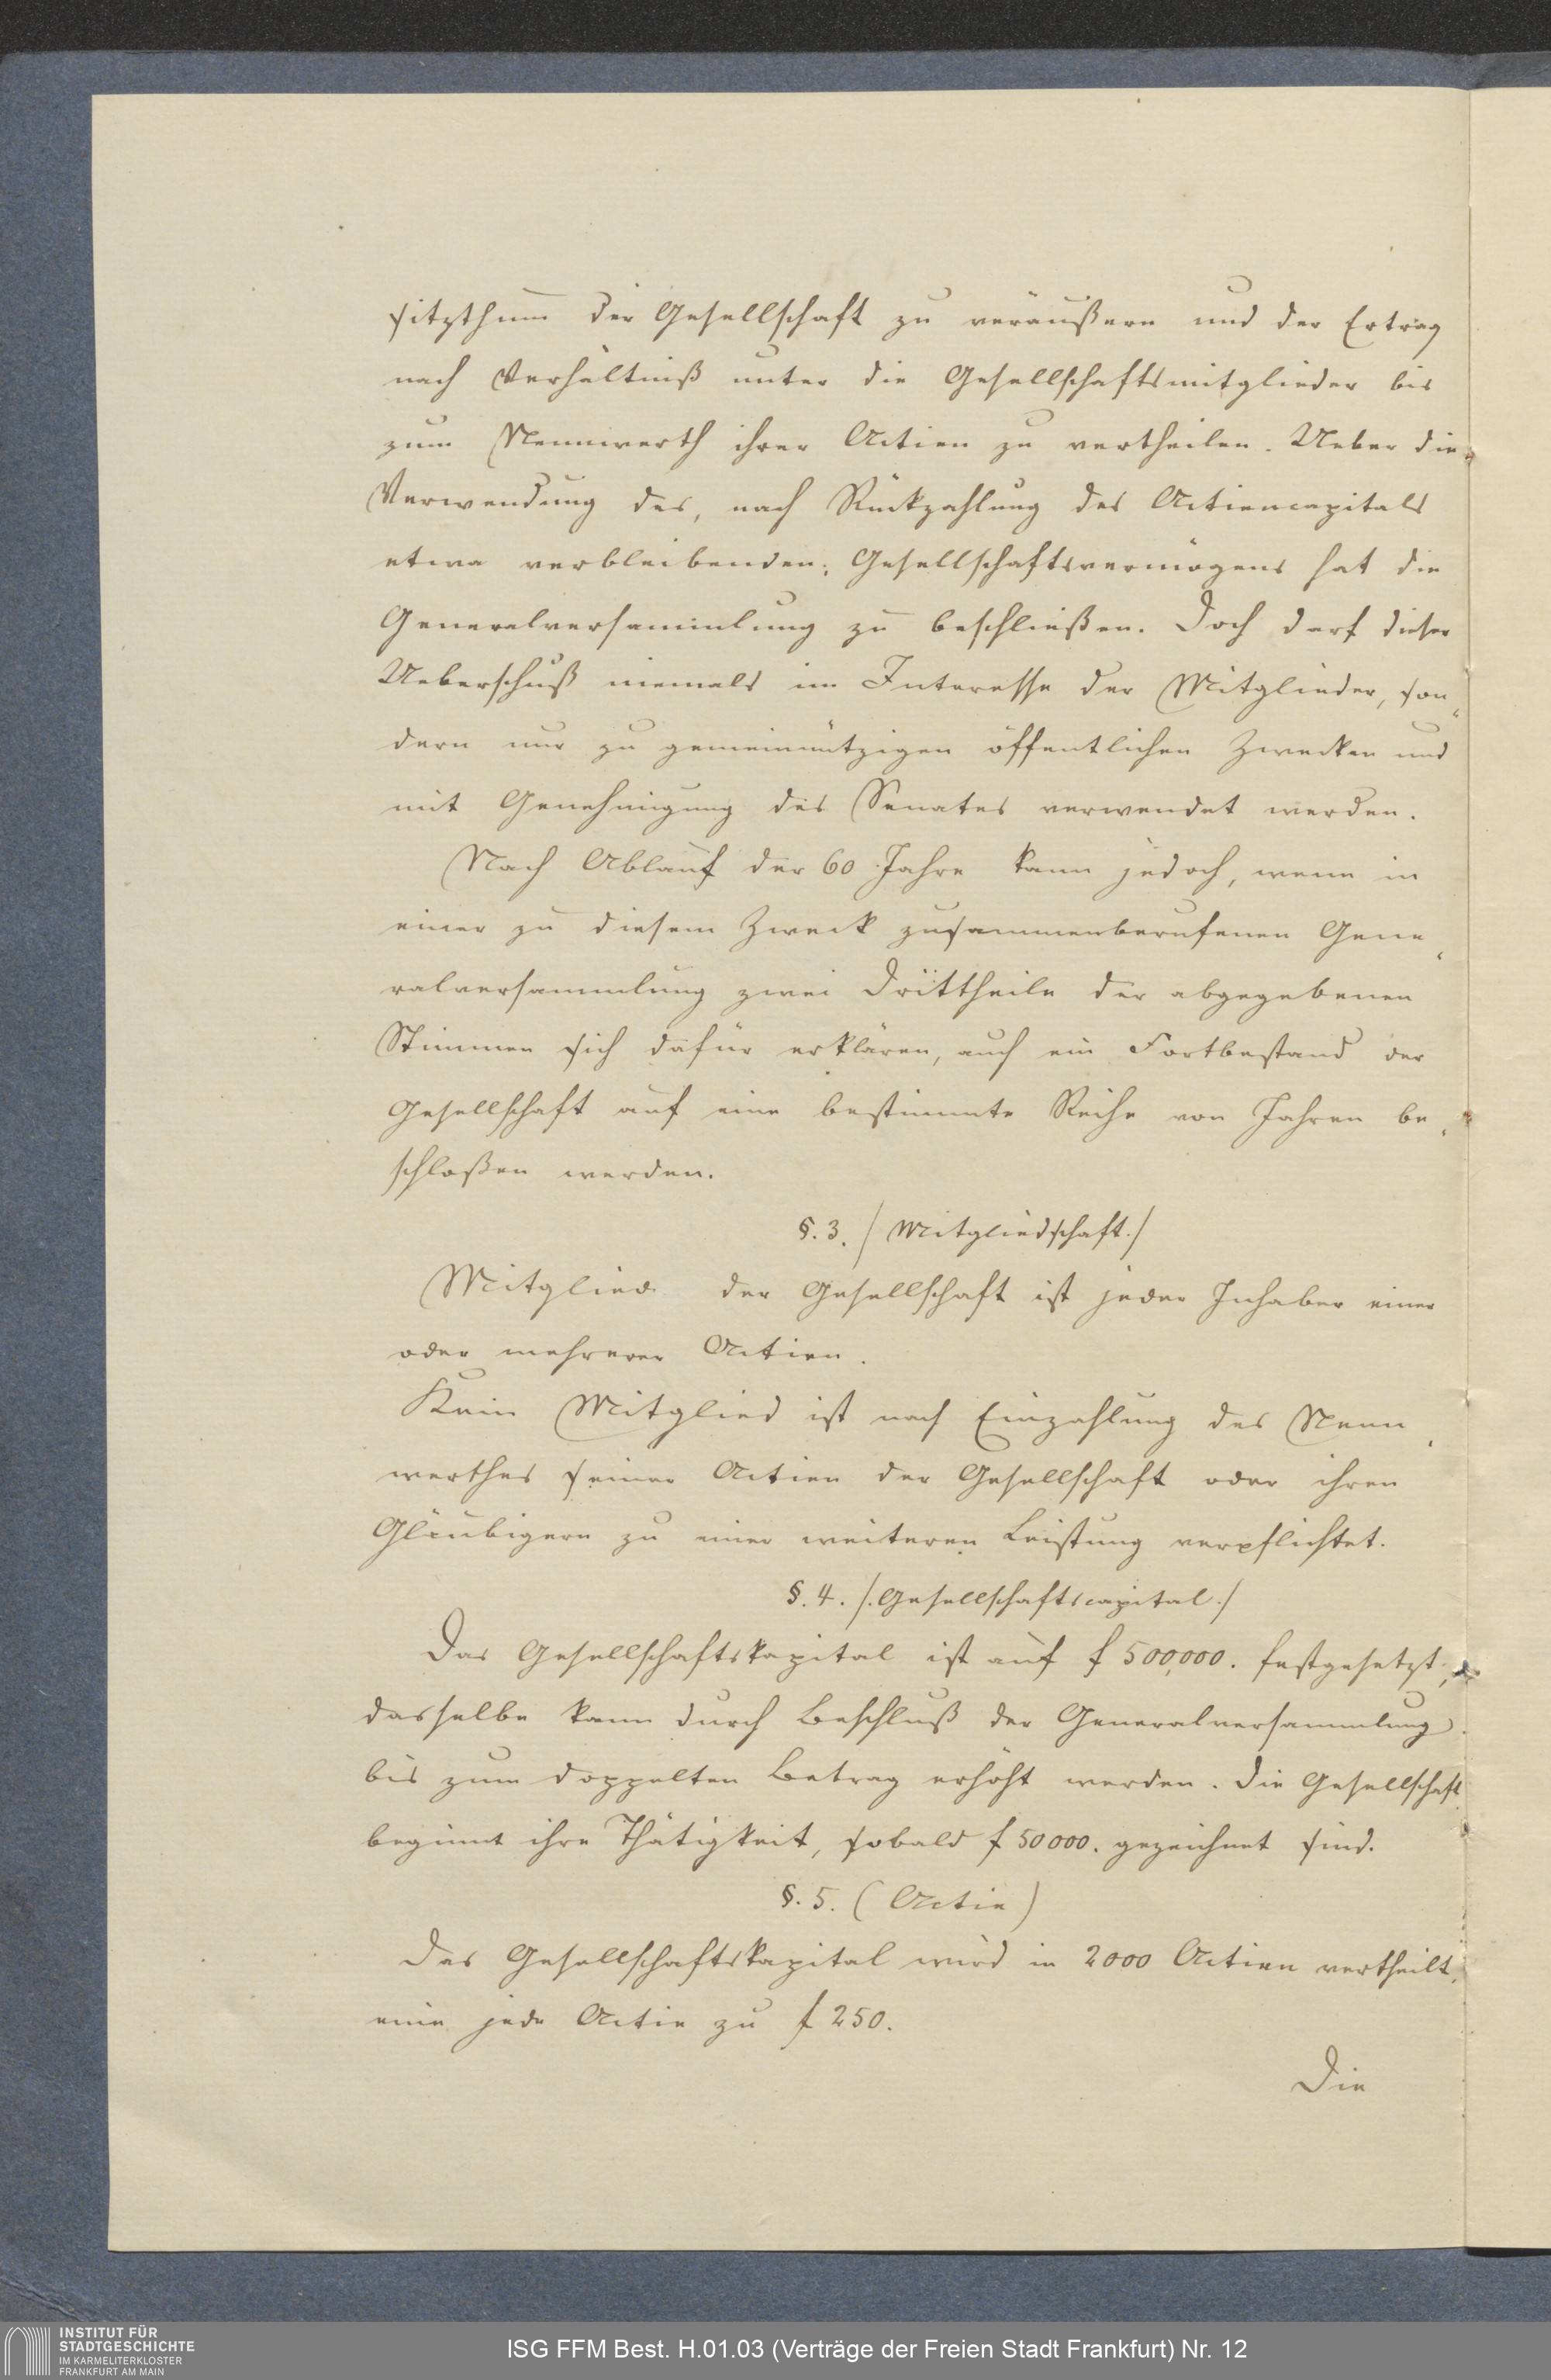 sitzthum der Gesellschaft zu veräußern und der Ertrag
nach Verhältniß unter die Gesellschaftsmitglieder bis
zum Nennwerth ihrer Actien zu vertheilen. Ueber die
Verwendung des, nach Rückzahlung des Actiencapitals
etwa verbleibenden, Gesellschaftsvermögens hat die
Generalversammlung zu beschließen. Doch darf dieser
Ueberschuß niemals im Interesse der Mitglieder, son„
dern nur zu gemeinnützigen öffentlichen Zwecken und
mit Genehmigung des Senates verwendet werden.
Nach Ablauf der 60 Jahre kann jedoch, wenn in
einer zu diesem Zweck zusammenberufenen Gene„
ralversammlung zwei Drittheile der abgegebenen
Stimmen sich dafür erklären, auch ein Fortbestand der
Gesellschaft auf eine bestimmte Reihe von Jahren be„
schloßen werden.
§. 3. /Mitgliedschaft./
Mitglied der Gesellschaft ist jeder Inhaber einer
oder mehrerer Actien.
Kein Mitglied ist nach Einzahlung des Nenn„
werthes seiner Actien der Gesellschaft oder ihren
Gläubigern zu einer weiteren Leistung verpflichtet.
§. 4. /.Gesellschaftscapital./
Das Gesellschaftskapital ist auf f 500,000. festgesetzt,
dasselbe kann durch Beschluß der Generalversammlung
bis zum doppelten Betrag erhöht werden. Die Gesellschaft
beginnt ihre Thätigkeit, sobald f 50000. gezeichnet sind.
§. 5. (Actie)
Das Gesellschaftskapital wird in 2000 Actien vertheilt,
eine jede Actie zu f 250.
Die
INSTITUT FÜR
STADTGESCHICHTE
IM KARMELITERKLOSTER
FRANKFURT AM MAIN
ISG FFM Best. H.01.03 (Verträge der Freien Stadt Frankfurt) Nr. 12